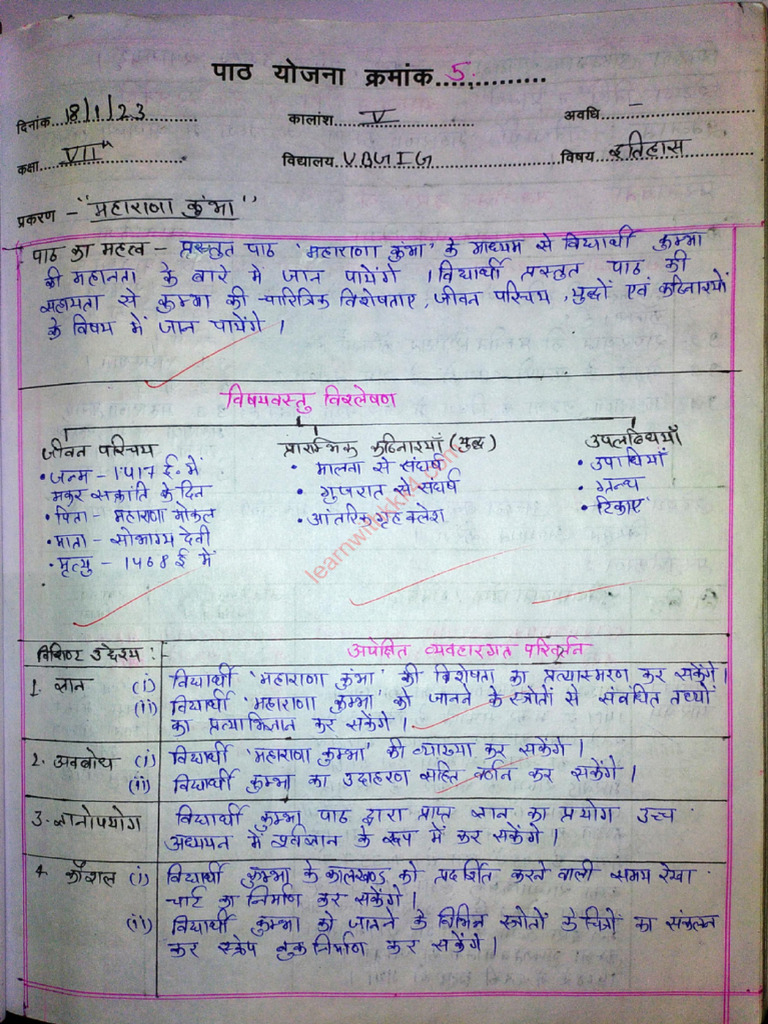 पाठ योजना क्रमांक..5..............
दिनांक..18/1/23.............. कालांश....V.............. अवधि....–..............
कक्षा....VIIth.............. विद्यालय..VBGIG.............. विषय..इतिहास..............
प्रकरण – "महाराणा कुंभा"
पाठ का महत्व – प्रस्तुत पाठ 'महाराणा कुंभा' के माध्यम से विद्यार्थी कुम्भा
की महानता के बारे मे जान पायेंगे । विद्यार्थी प्रस्तुत पाठ की
सहायता से कुम्भा की चारित्रिक विशेषताए, जीवन परिचय, युद्धों एवं कठिनाइयों
के विषय में जान पायेंगे ।
विषयवस्तु विश्लेषण
जीवन परिचय प्रारम्भिक कठिनाइयाँ (युद्ध) उपलब्धियाँ
• जन्म – 1417 ई. में • मालवा से संघर्ष • उपाधियाँ
मकर सक्रांति के दिन • गुजरात से संघर्ष • ग्रन्थ
• पिता – महाराणा मोकल • आंतरिक गृह क्लेश • टिकाए
• माता – सोभाग्य देवी
• मृत्यु – 1468 ई में
learnwithkk14.com
विशिष्ट उद्देश्य :- अपेक्षित व्यवहारगत परिवर्तन
1. ज्ञान (i) विद्यार्थी 'महाराणा कुंभा' की विशेषता का प्रत्यास्मरण कर सकेंगे।
(ii) विद्यार्थी 'महाराणा कुम्भा' को जानने के स्त्रोतों से संबंधित तथ्यों
का प्रत्याभिज्ञान कर सकेंगे ।
2. अवबोध (i) विद्यार्थी 'महाराणा कुम्भा' की व्याख्या कर सकेंगे ।
(ii) विद्यार्थी कुम्भा का उदाहरण सहित वर्णन कर सकेंगे ।
3. ज्ञानोपयोग विद्यार्थी कुम्भा पाठ द्वारा प्राप्त ज्ञान का प्रयोग उच्च
अध्ययन में पूर्वज्ञान के रूप में कर सकेंगे ।
4. कौशल (i) विद्यार्थी कुम्भा के कालखण्ड को प्रदर्शित करने वाली समय रेखा
चार्ट का निर्माण कर सकेंगे ।
(ii) विद्यार्थी कुम्भा को जानने के विभिन्न स्त्रोतों के चित्रों का संकलन
कर स्क्रेप बुक निर्माण कर सकेंगे ।